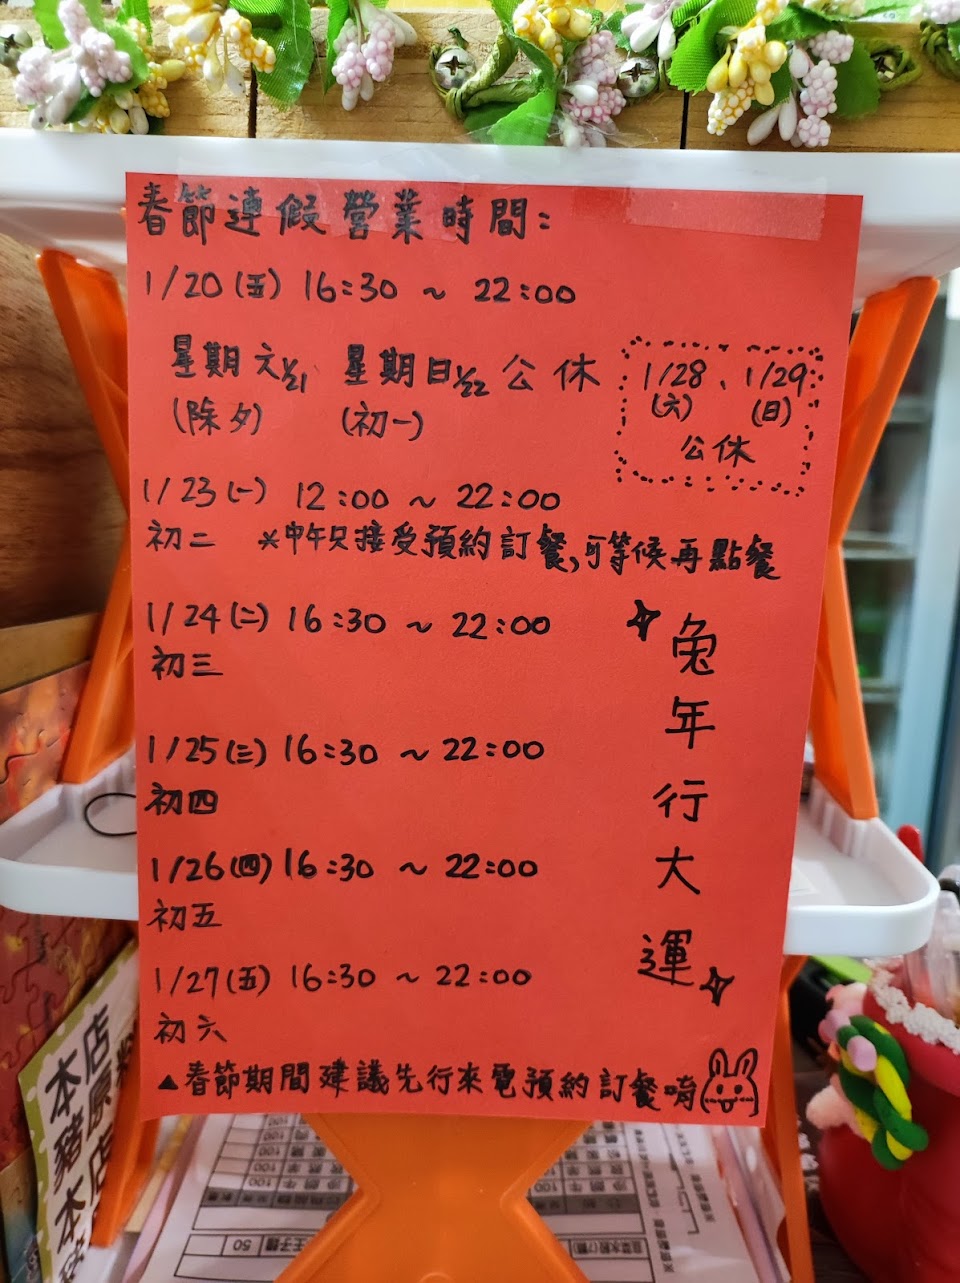 春節連假營業時間:
1/20(五) 16:30 ~ 22:00
星期六1/21 星期日1/22 公休
(除夕) (初一)
1/28、1/29
(六) (日)
公休
1/23(一) 12:00 ~ 22:00
初二 *中午只接受預約訂餐,可等候再點餐
1/24(二) 16:30 ~ 22:00
初三
1/25(三) 16:30 ~ 22:00
初四
1/26(四) 16:30 ~ 22:00
初五
1/27(五) 16:30 ~ 22:00
初六
兔年行大運
▲春節期間建議先行來電預約訂餐唷
本店原料
本豬店
本
50
100
100
100